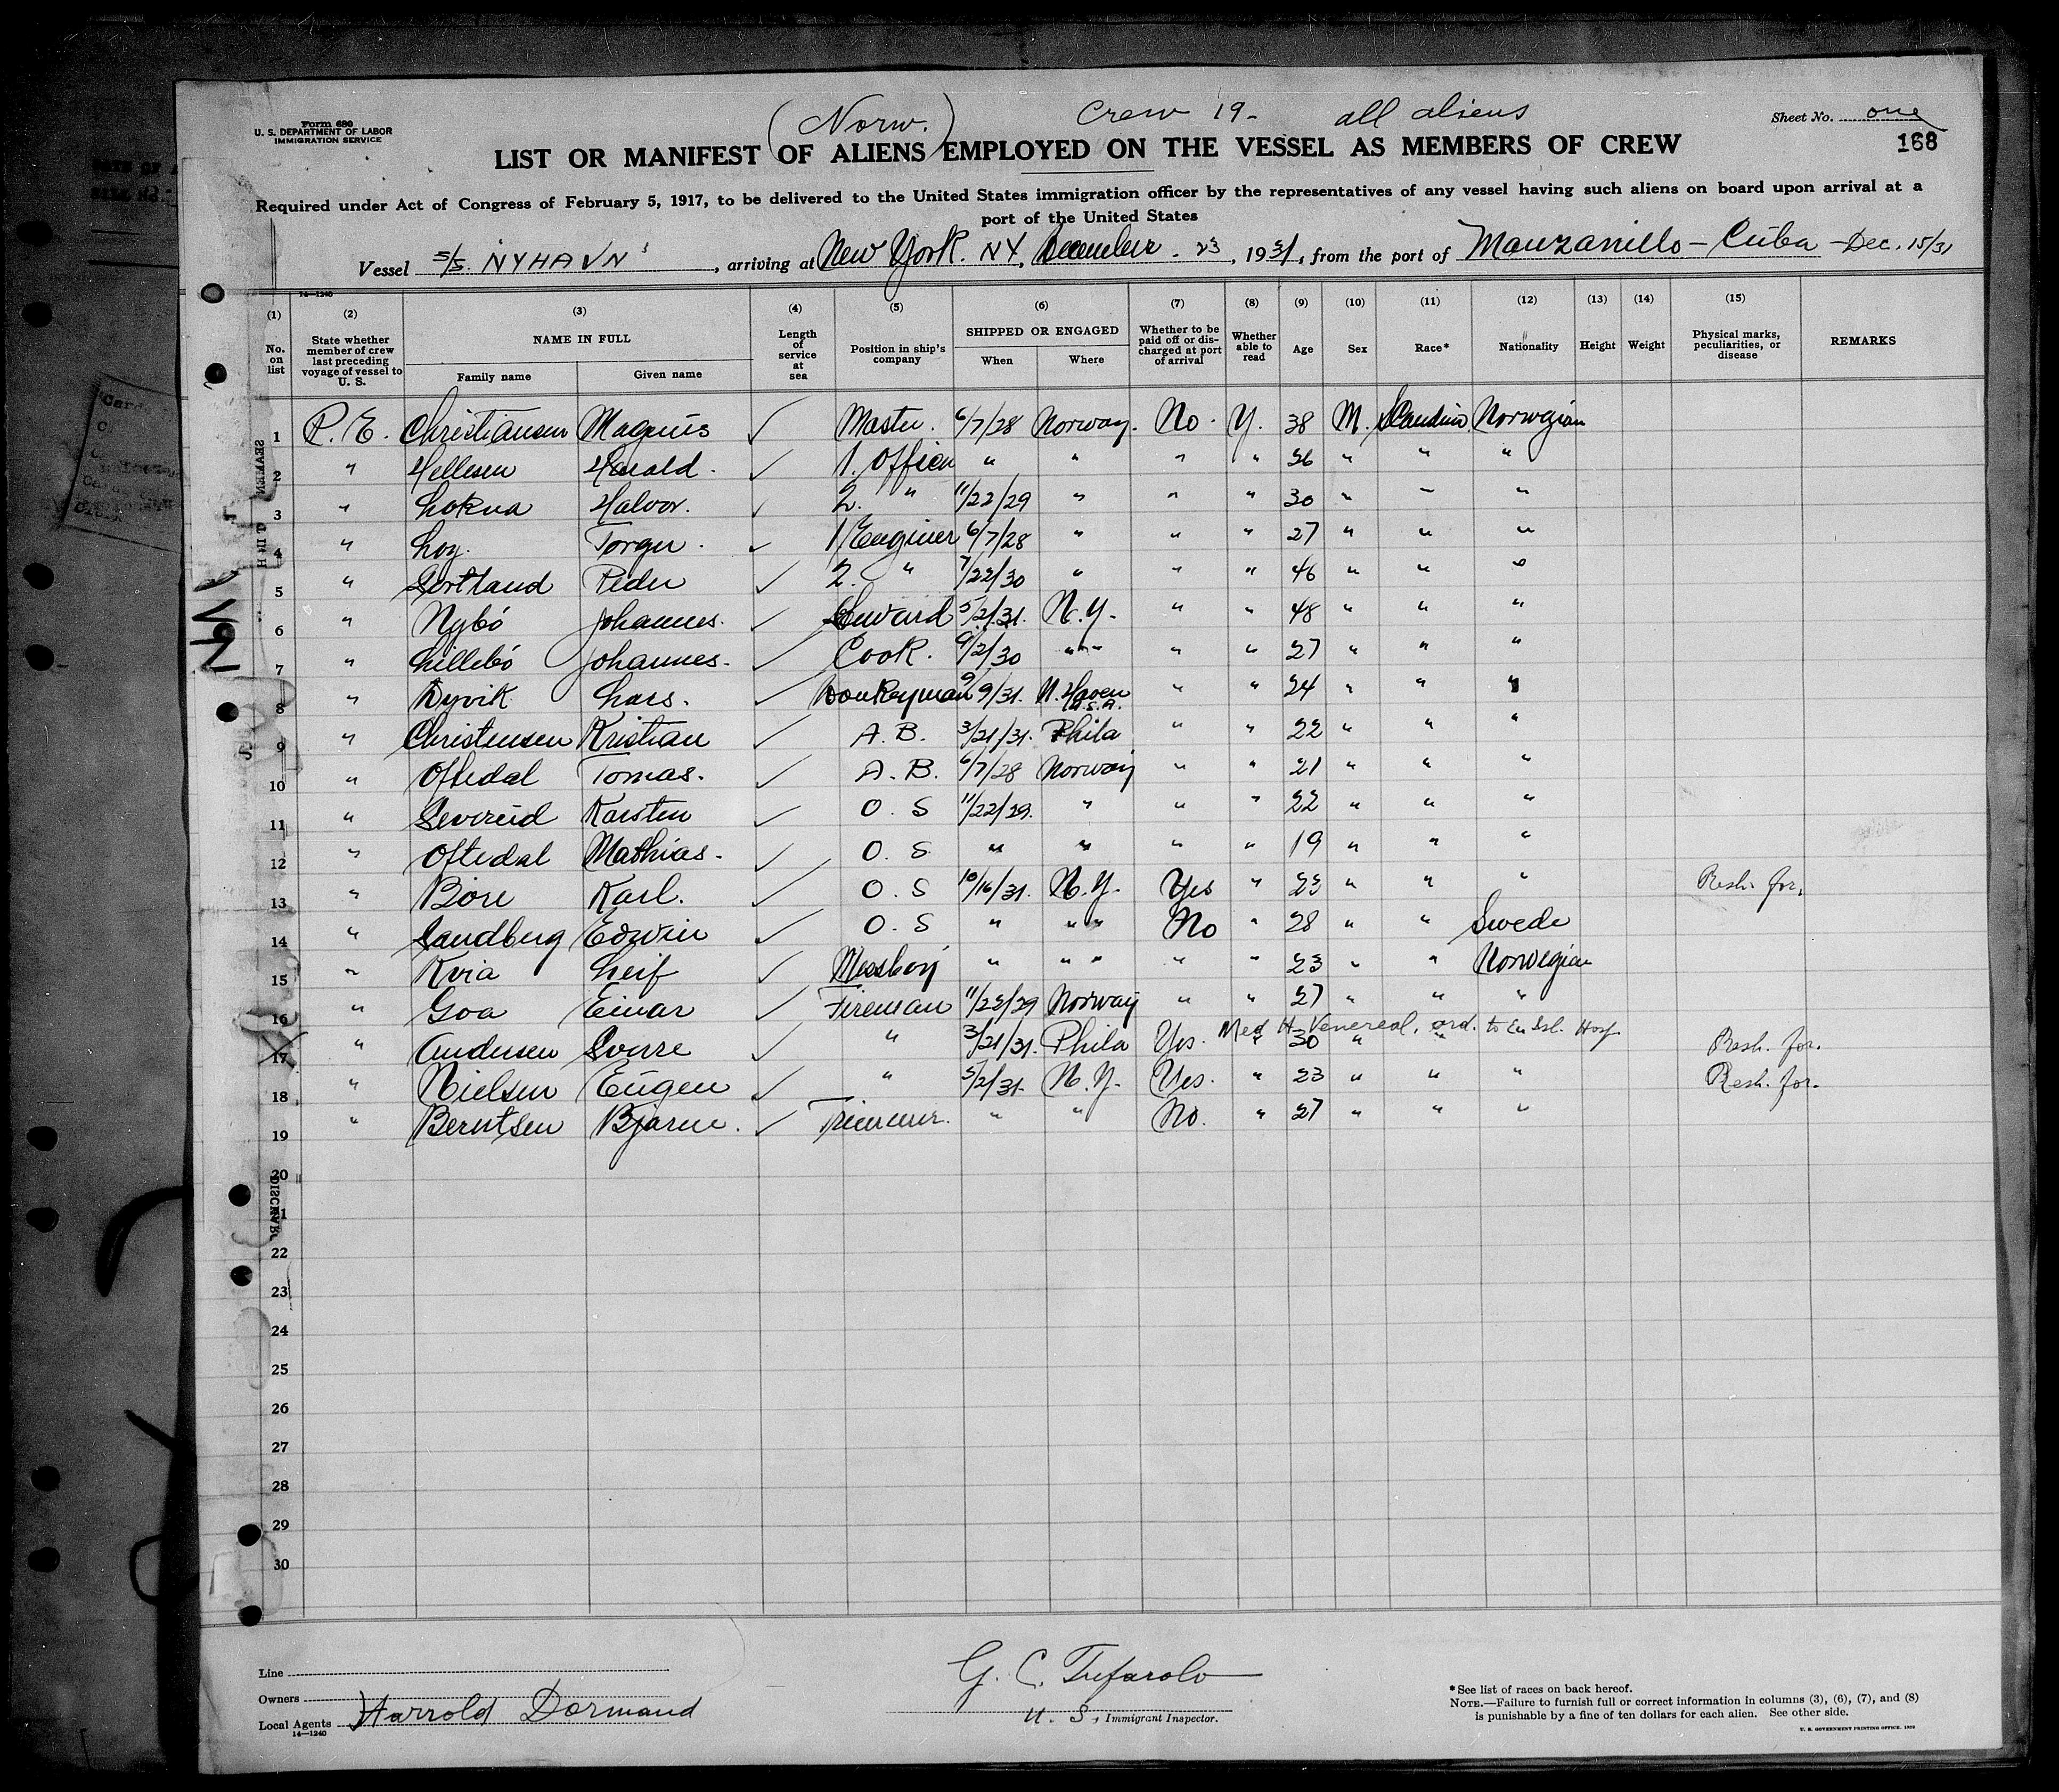 Form 680
U. S. DEPARTMENT OF LABOR
IMMIGRATION SERVICE
(Norw.) Crew 19- all aliens
Sheet No. one
168
LIST OR MANIFEST OF ALIENS EMPLOYED ON THE VESSEL AS MEMBERS OF CREW
Required under Act of Congress of February 5, 1917, to be delivered to the United States immigration officer by the representatives of any vessel having such aliens on board upon arrival at a
port of the United States
Vessel S/S. NYHAVN, arriving at New York. NY, December. 23, 1931, from the port of Manzanillo - Cuba - Dec. 15/31
14-1240
(1) (2) (3) (4) (5) (6) (7) (8) (9) (10) (11) (12) (13) (14) (15)
No. on list | State whether member of crew last preceding voyage of vessel to U. S. | NAME IN FULL Family name Given name | Length of service at sea | Position in ship's company | SHIPPED OR ENGAGED When Where | Whether to be paid off or discharged at port of arrival | Whether able to read | Age | Sex | Race* | Nationality | Height | Weight | Physical marks, peculiarities, or disease | REMARKS
1 P. E. Christiansen Magnus ✓ Master. 6/7/28 Norway. No. Y. 38 M. Scandin. Norwegian
2 " Hellesen Harald. ✓ 1. Officer " " " " 26 " " "
3 " Lokna Halvor. ✓ 2. " 11/22/29 " " " 30 " " "
4 " Loy. Torger. ✓ 1 Enginer 6/7/28 " " " 27 " " "
5 " Sortland Peder ✓ 2. " 7/22/30 " " " 46 " " "
6 " Nybó Johannes. ✓ Steward 5/2/31. N.Y. " " 48 " " "
7 " Lillebó Johannes. ✓ Cook. 9/2/30 " " " " 27 " " "
8 " Dyvik Lars. ✓ Donkeyman 9/9/31. N. Haven U.S.A. " " 24 " " "
9 " Christensen Kristian ✓ A. B. 3/21/31. Phila " " 22 " " "
10 " Oftedal Tomas. ✓ A. B. 6/7/28 Norway " " 21 " " "
11 " Sevreid Karsten ✓ O. S 11/22/29. " " " 22 " " "
12 " Oftedal Mathias. ✓ O. S " " " " 19 " " "
13 " Bore Karl. ✓ O. S 10/16/31. N.Y. Yes " 23 " " " Resh. for.
14 " Sandberg Edwin ✓ O. S " " " No " 28 " " Swede
15 " Kvia Leif ✓ Messboy " " " " " 23 " " Norwegian
16 " Goa Einar ✓ Fireman 11/22/29 Norway " " 27 " " "
Med H. Venereal, ord. to En Isl. Hosp
17 " Andersen Sverre ✓ " 3/21/31. Phila Yes. " 30 " " Resh. for.
18 " Nielsen Eugen ✓ " 5/2/31. N.Y. Yes. " 23 " " " Resh. for.
19 " Berntsen Bjarne. ✓ Trimmer. " " No. " 27 " " "
20
21
22
23
24
25
26
27
28
29
30
Line
Owners
Local Agents Harrold Dormand
14-1240
G. C. Tufarolo
U. S., Immigrant Inspector.
*See list of races on back hereof.
NOTE.—Failure to furnish full or correct information in columns (3), (6), (7), and (8)
is punishable by a fine of ten dollars for each alien. See other side.
U. S. GOVERNMENT PRINTING OFFICE. 1929